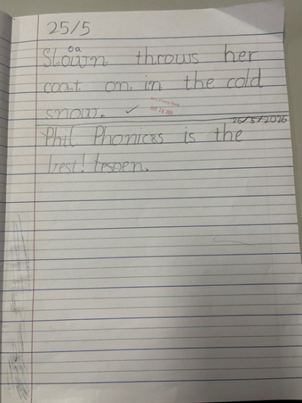 25/5
oa
Slown throws her
coat on in the cold
snow. ✓
26/5/2026
Phil Phonicss is the
best! tespen.